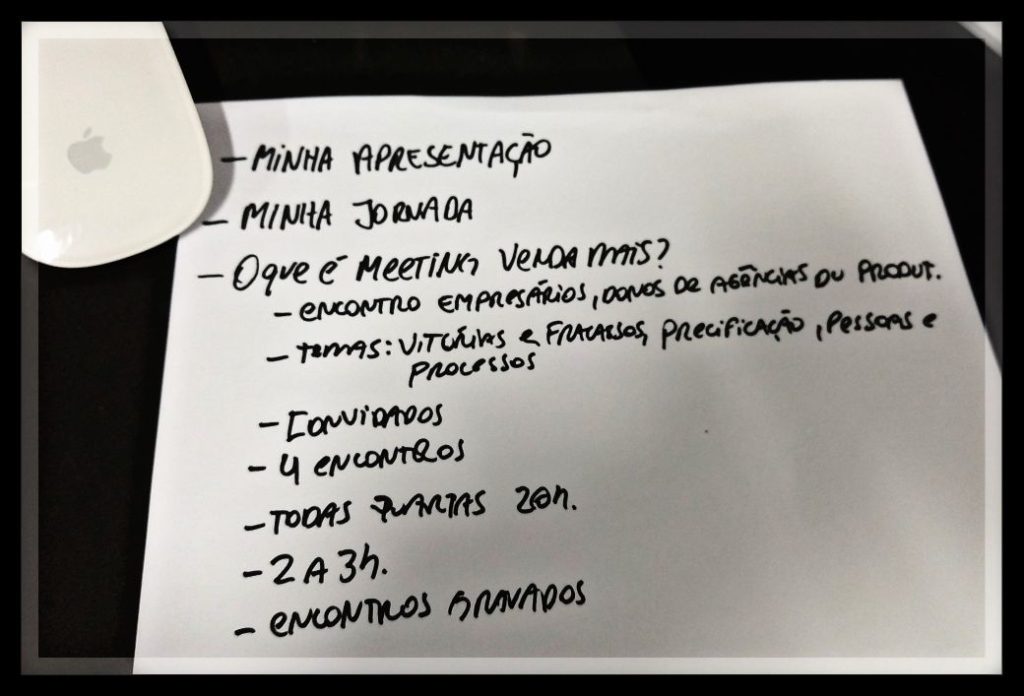 - MINHA APRESENTAÇÃO
- MINHA JORNADA
- O que é MEETING VENDA MAIS?
- ENCONTRO EMPRESÁRIOS, DONOS DE AGÊNCIAS OU PRODUT.
- TEMAS: VITÓRIAS e FRACASSOS, PRECIFICAÇÃO, PESSOAS e
PROCESSOS
- CONVIDADOS
- 4 ENCONTROS
- TODAS QUARTAS 20h.
- 2 A 3h.
- ENCONTROS GRAVADOS